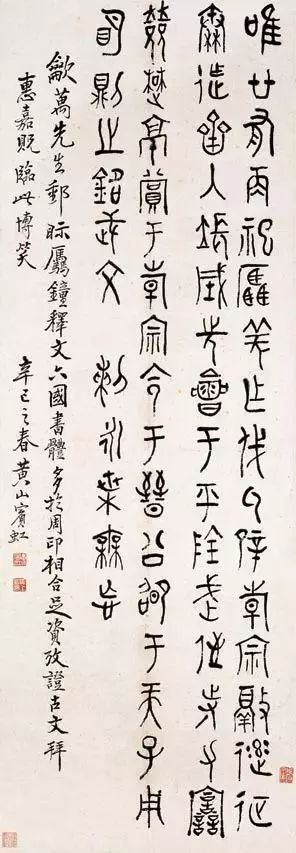 唯廿又再祀驫羌乍伐氒辟倝宗敲征
秦迮齊入張城先會于平陰武侄寺力
敓楚京賞于倝宗令于晉公卲于天子用
明則之銘武文剌永枼毋忘
萬先生郵眎鐘釋文六國書體多於周印相合足資攷證古文拜
惠嘉貺臨此博笑
辛巳之春黃山賓虹